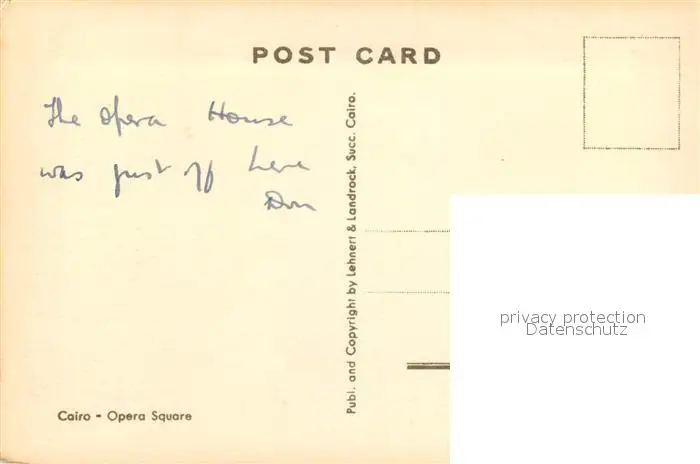 POST CARD
The Opera House
was just off here
Don
Publ. and Copyright by Lehnert & Landrock, Succ. Cairo.
Cairo - Opera Square
privacy protection
Datenschutz